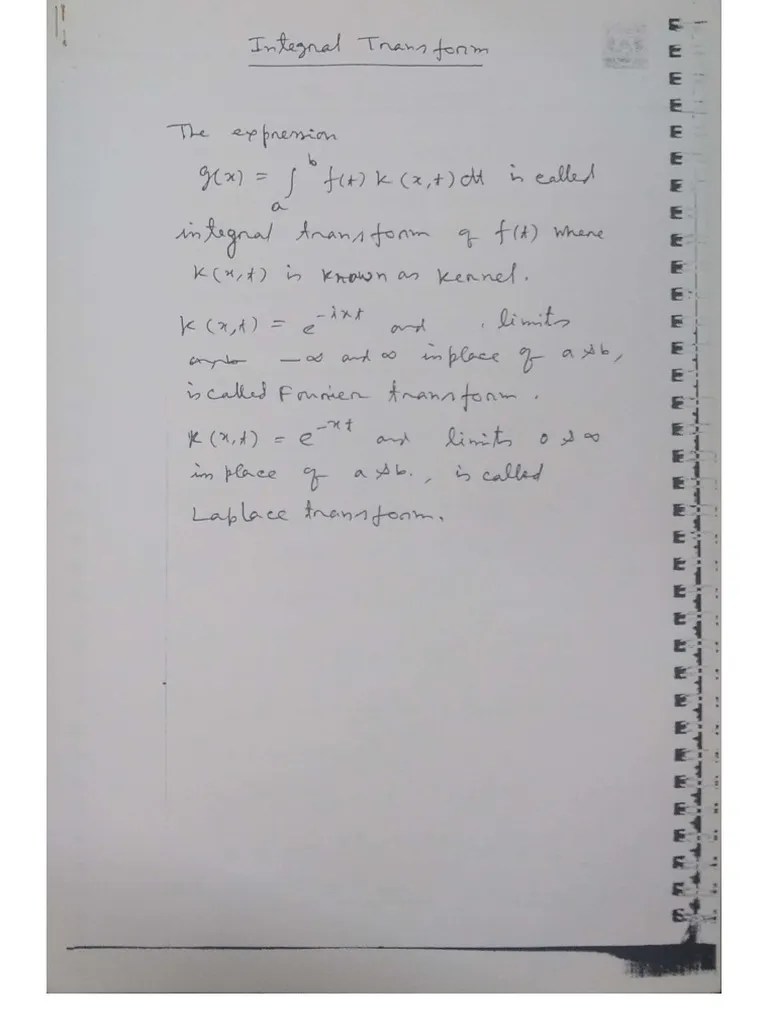 Integral Transform
The expression
g(x) = ∫_a^b f(t) K(x,t) dt is called
integral transform of f(t) where
K(x,t) is known as kernel.
K(x,t) = e^{-ixt} and , limits
-∞ and ∞ in place of a & b,
is called Fourier transform.
K(x,t) = e^{-xt} and limits 0 & ∞
in place of a & b., is called
Laplace transform.